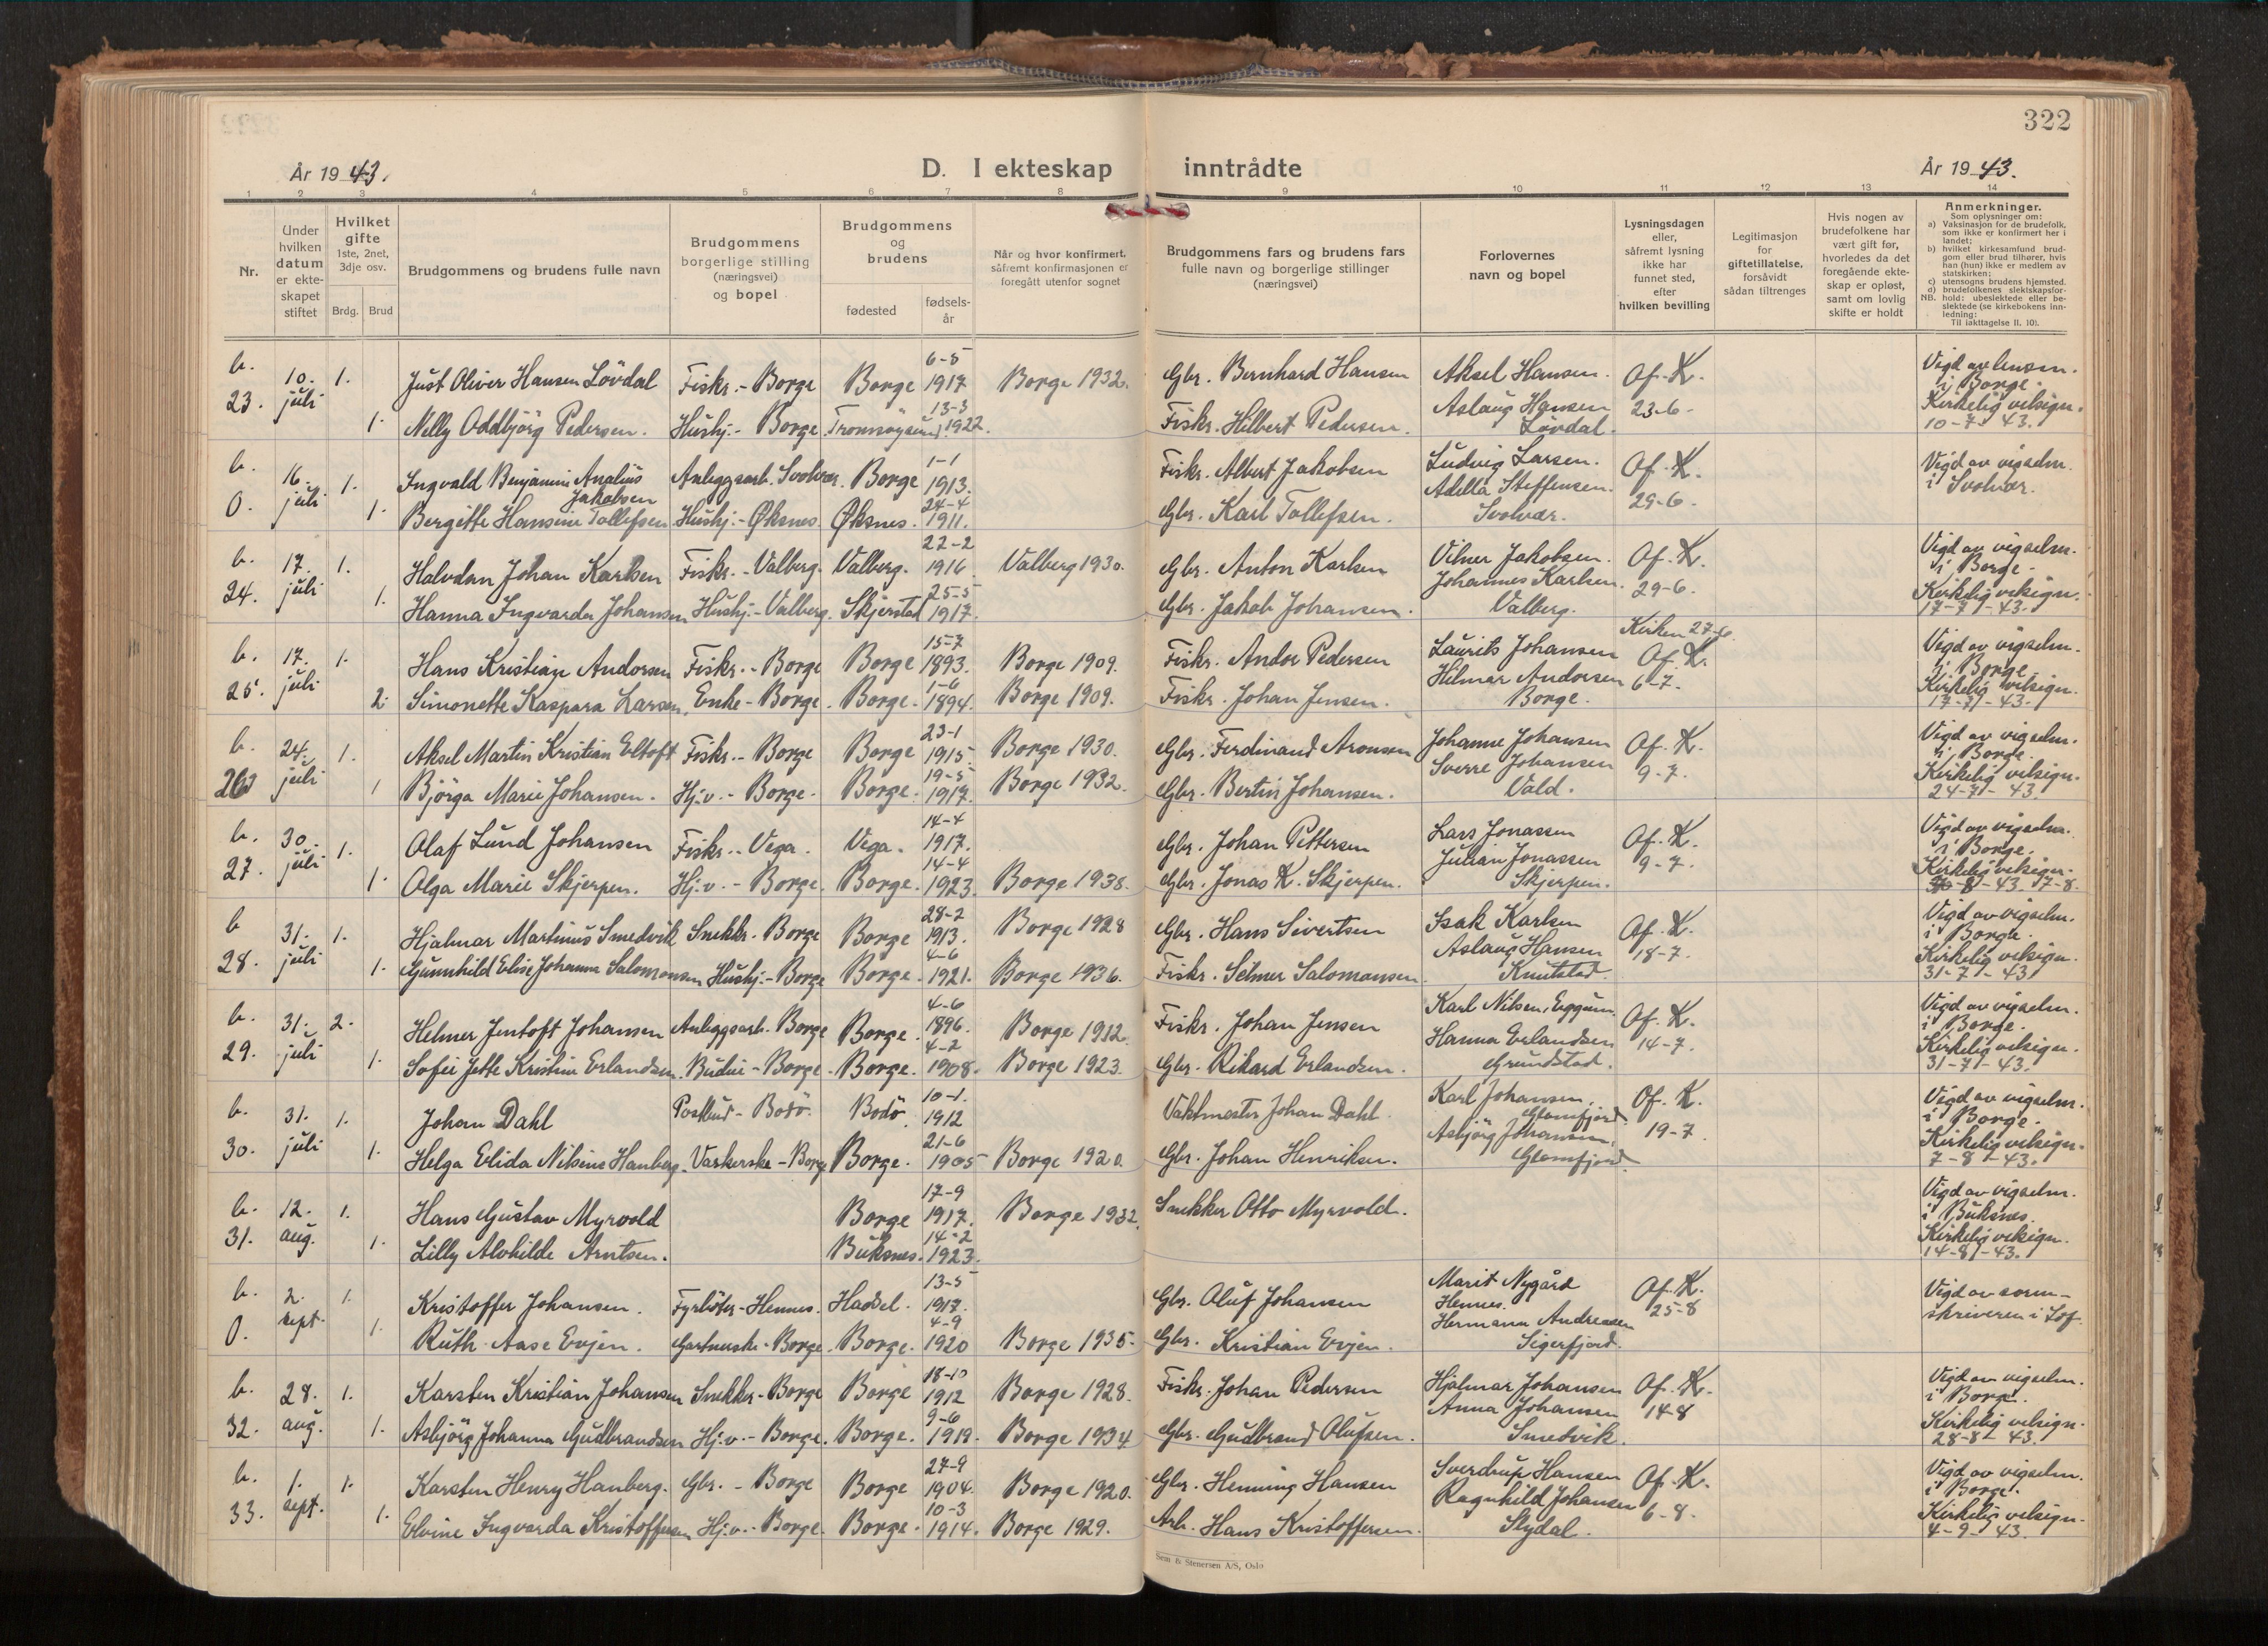 322
År 19 43.
D. I ekteskap inntrådte
År 19 43.
1 2 3 4 5 6 7 8 9 10 11 12 13 14
Nr.
Under
hvilken
datum
er ekte-
skapet
stiftet
Hvilket
gifte
1ste, 2net,
3dje osv.
Brdg. Brud
Brudgommens og brudens fulle navn
Brudgommens
borgerlige stilling
(næringsvei)
og bopel
Brudgommens
og
brudens
fødested
fødsels-
år
Når og hvor konfirmert,
såfremt konfirmasjonen er
foregått utenfor sognet
Brudgommens fars og brudens fars
fulle navn og borgerlige stillinger
(næringsvei)
Forlovernes
navn og bopel
Lysningsdagen
eller,
såfremt lysning
ikke har
funnet sted,
efter
hvilken bevilling
Legitimasjon
for
giftetillatelse,
forsåvidt
sådan tiltrenges
Hvis nogen av
brudefolkene har
vært gift før,
hvorledes da det
foregående ekte-
skap er opløst,
samt om lovlig
skifte er holdt
Anmerkninger.
Som oplysninger om:
a) Vaksinasjon for de brudefolk,
som ikke er konfirmert her i
landet;
b) hvilket kirkesamfund brud-
gom eller brud tilhører, hvis
han (hun) ikke er medlem av
statskirken;
c) utensogns brudens hjemsted.
d) brudefolkenes slektskapsfor-
NB. hold: ubeslektede eller be-
slektede (se kirkebokens inn-
ledning:
Til iakttagelse II. 10).
b. 10. 1. Just Oliver Hansen Lövdal Fiskr. - Borge Borge 6-5 1917 Borge 1932. Gbr. Bernhard Hansen Aksel Hansen. Of. K. Vigd av lensm.
i Borge.
23. juli 1. Nelly Oddbjörg Pedersen. Hushj. - Borge Tromsöysund 13-3 1922. Fiskr. Hilbert Pedersen. Aslaug Hansen 23-6. Kirkelig velsign.
Lövdal. 10-7-43.
b. 16. 1. Ingvald Benjamin Analius Anleggsarb. Svolvær. Borge 1-1 1913. Fiskr. Albert Jakobsen Ludvig Larsen. Of. K. Vigd av vigselm.
Jakobsen Adella Steffensen. i Svolvær.
0. juli 1. Bergitte Hansine Tollefsen Hushj. - Øksnes. Øksnes. 24-4 1911. Gbr. Karl Tollefsen. Svolvær. 29-6.
b. 17. 1. Halvdan Johan Karlsen Fiskr. - Valberg. Valberg. 22-2 1916 Valberg 1930. Gbr. Anton Karlsen Vilner Jakobsen. Of. K. Vigd av vigselm.
i Borge.
24. juli 1. Hanna Ingvarda Johansen Hushj. - Valberg. Skjerstad 25-5 1917. Gbr. Jakob Johansen. Johannes Karlsen. 29-6. Kirkelig velsign.
Valberg. 17-7-43.
Kirken 27-6.
b. 17. 1. Hans Kristian Andorsen Fiskr. - Borge Borge 15-7 1893. Borge 1909. Fiskr. Andor Pedersen Laurits Johansen Of. K. Vigd av vigselm.
i Borge.
25. juli 2. Simonette Kaspara Larsen. Enke - Borge. Borge. 1-6 1894. Borge 1909. Fiskr. Johan Jensen. Hilmar Andorsen 6-7. Kirkelig velsign.
Borge. 17-7-43.
b. 24. 1. Aksel Martin Kristian Eltoft Fiskr. - Borge Borge 23-1 1915. Borge 1930. Gbr. Ferdinand Aronsen Johanne Johansen Of. K. Vigd av vigselm.
i Borge.
26 juli 1 Björga Marie Johansen. Hj.v. - Borge. Borge. 19-5 1917. Borge 1932. Gbr. Bertin Johansen. Sverre Johansen 9-7. Kirkelig velsign.
Vald. 24-7-43.
b. 30. 1. Olaf Lund Johansen Fiskr. - Vega. Vega. 14-4 1917. Gbr. Johan Pettersen Lars Jonassen Of. K. Vigd av vigselm.
i Borge.
27. juli 1. Olga Marie Skjerpen. Hj.v. - Borge. Borge. 14-4 1923. Borge 1938. Gbr. Jonas K. Skjerpen. Julian Jonassen 9-7. Kirkelig velsign.
Skjerpen. -8-43. 7-8.
b 31. 1. Hjalmar Martinus Smedvik Snekkr. Borge Borge 28-2 1913. Borge 1928 Gbr. Hans Sivertsen Isak Karlsen Of. K. Vigd av vigselm.
i Borge.
28. juli 1. Gunnhild Elise Johanna Salomonsen Hushj. - Borge Borge. 4-6 1921. Borge 1936. Fiskr. Selmer Salomonsen. Aslaug Hansen 18-7. Kirkelig velsign.
Knutstad. 31-7-43.
b. 31. 2. Helmer Jentoft Johansen Anleggsarb. Borge Borge. 4-6 1896. Borge 1912. Fiskr. Johan Jensen Karl Nilsen, Eggum. Of. K. Vigd av vigselm.
i Borge.
29. juli 1. Sofie Jette Kristine Erlandsen. Budeie - Borge. Borge. 4-2 1908. Borge 1923. Gbr. Rikard Erlandsen. Hanna Erlandsen 14-7. Kirkelig velsign.
Grundstad. 31-7-43.
b. 31. 1. Johan Dahl Postbud - Bodö. Bodö. 10-1. 1912 Vaktmester Johan Dahl Karl Johansen, Of. K. Vigd av vigselm.
Glomfjord. i Borge.
30. juli 1. Helga Elida Nilsine Hanberg. Vaskerske - Borge Borge. 21-6 1905 Borge 1920. Gbr. Johan Henriksen. Asbjörg Johansen, 19-7. Kirkelig velsign.
Glomfjord. 7-8-43.
b. 12. 1. Hans Gustav Myrvold Borge 17-9 1917. Borge 1932. Snekker Otto Myrvold. Vigd av vigselm.
i Buksnes.
31. aug. 1. Lilly Alvhilde Arntsen. Buksnes. 14-2 1923. Kirkelig velsign.
14-8-43.
b. 2. 1. Kristoffer Johansen. Fyrböter - Hennes. Hadsel. 13-5 1917. Gbr. Oluf Johansen Marit Nygård Of. K. Vigd av soren-
Hennes. 25-8 skriveren i Lof.
0. sept. 1. Ruth Aase Evjen. Gartnerske - Borge. Borge. 4-9 1920 Borge 1935. Gbr. Kristian Evjen. Hermann Andreassen
Sigerfjord.
b. 28. 1. Karsten Kristian Johansen Snekker - Borge Borge 18-10 1912 Borge 1928. Fiskr. Johan Pedersen Hjalmar Johansen Of. K. Vigd av vigselm.
i Borge.
32. aug. 1. Asbjörg Johanna Gudbrandsen Hj.v. - Borge. Borge. 9-6 1919. Borge 1934 Gbr. Gudbrand Olufsen. Anna Johansen 14-8 Kirkelig velsign.
Smedvik. 28-8-43.
b. 1. 1. Karsten Henry Hanberg. Gbr. - Borge Borge 27-9 1904. Borge 1920. Gbr. Henning Hansen Sverdrup Hansen Of. K. Vigd av vigselm.
i Borge.
33. sept. 1. Elvine Ingvarda Kristoffersen Hj.v. - Borge. Borge. 10-3 1914. Borge 1929. Arb. Hans Kristoffersen. Ragnhild Johansen 6-8. Kirkelig velsign.
Slydal. 4-9-43.
Sem & Stenersen A/S, Oslo